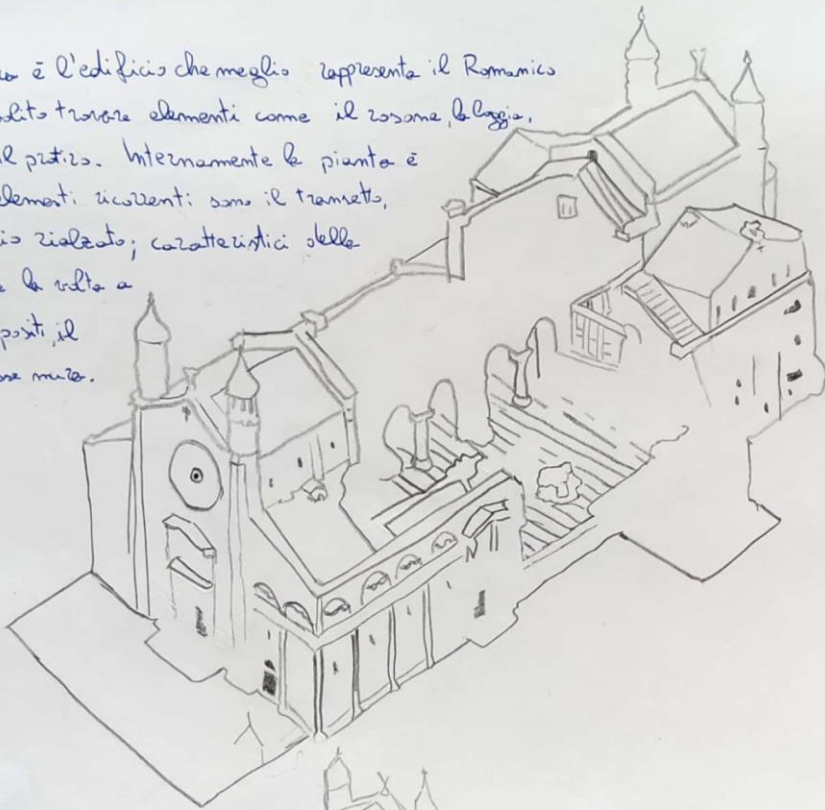 è l'edificio che meglio rappresenta il Romanico
trovare elementi come il rosone, la loggia,
il protiro. Internamente la pianta è
elementi ricorrenti sono il transetto,
rialzato; caratteristici delle
la volta a
il
mura.